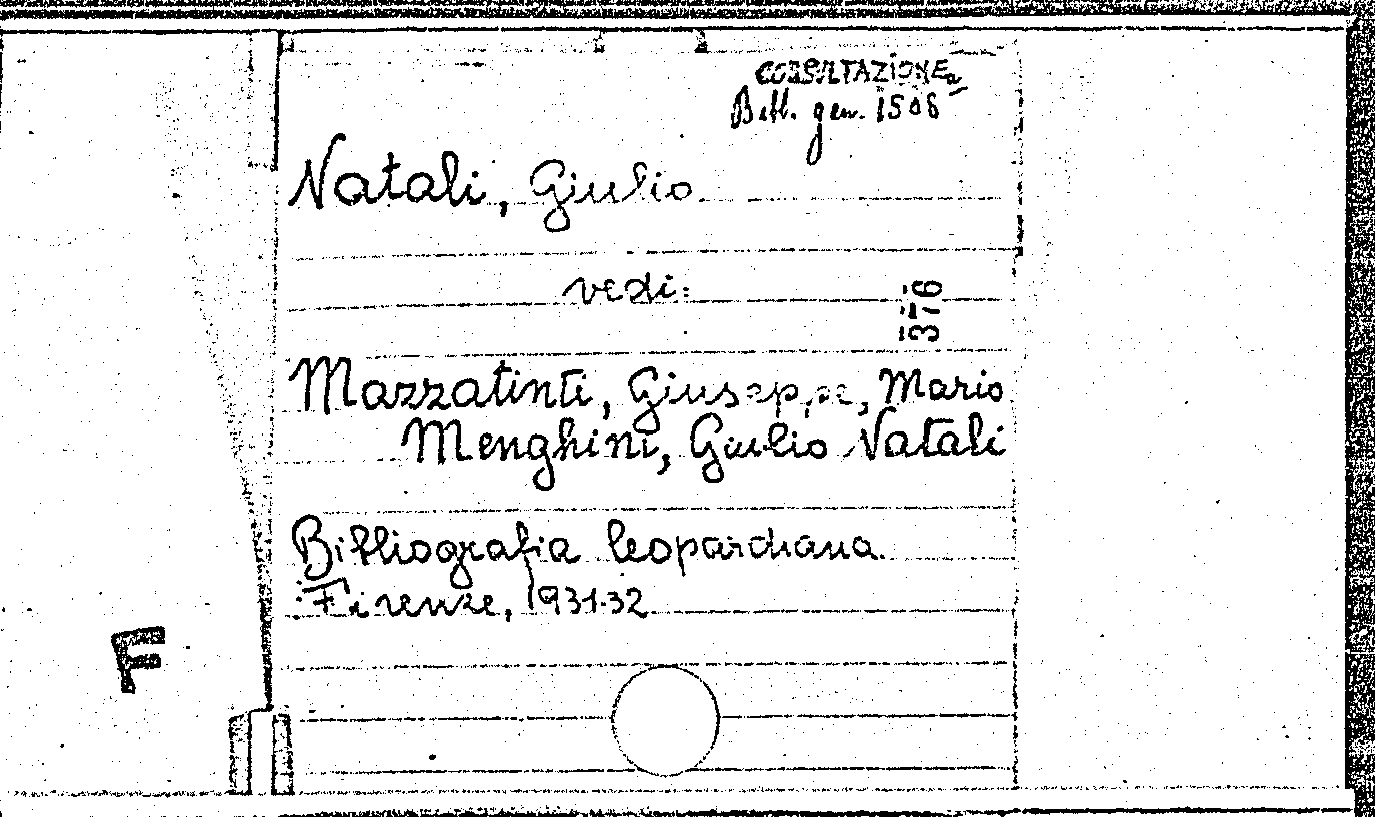 CONSULTAZIONE
Bibl. gen. 1508
Natali, Giulio
vedi:
376
Mazzatinti, Giuseppe, Mario
Menghini, Giulio Natali
Bibliografia leopardiana.
Firenze, 1931-32
F